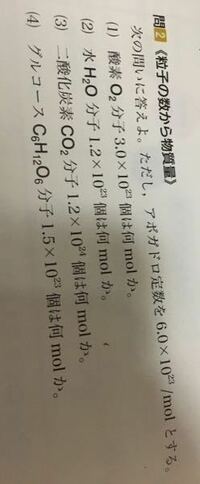 問2《粒子の数から物質量》
次の問いに答えよ。ただし，アボガドロ定数を 6.0×10²³/mol とする。
(1) 酸素 O₂ 分子 3.0×10²³ 個は何 mol か。
(2) 水 H₂O 分子 1.2×10²³ 個は何 mol か。
(3) 二酸化炭素 CO₂ 分子 1.2×10²⁴ 個は何 mol か。
(4) グルコース C₆H₁₂O₆ 分子 1.5×10²³ 個は何 mol か。